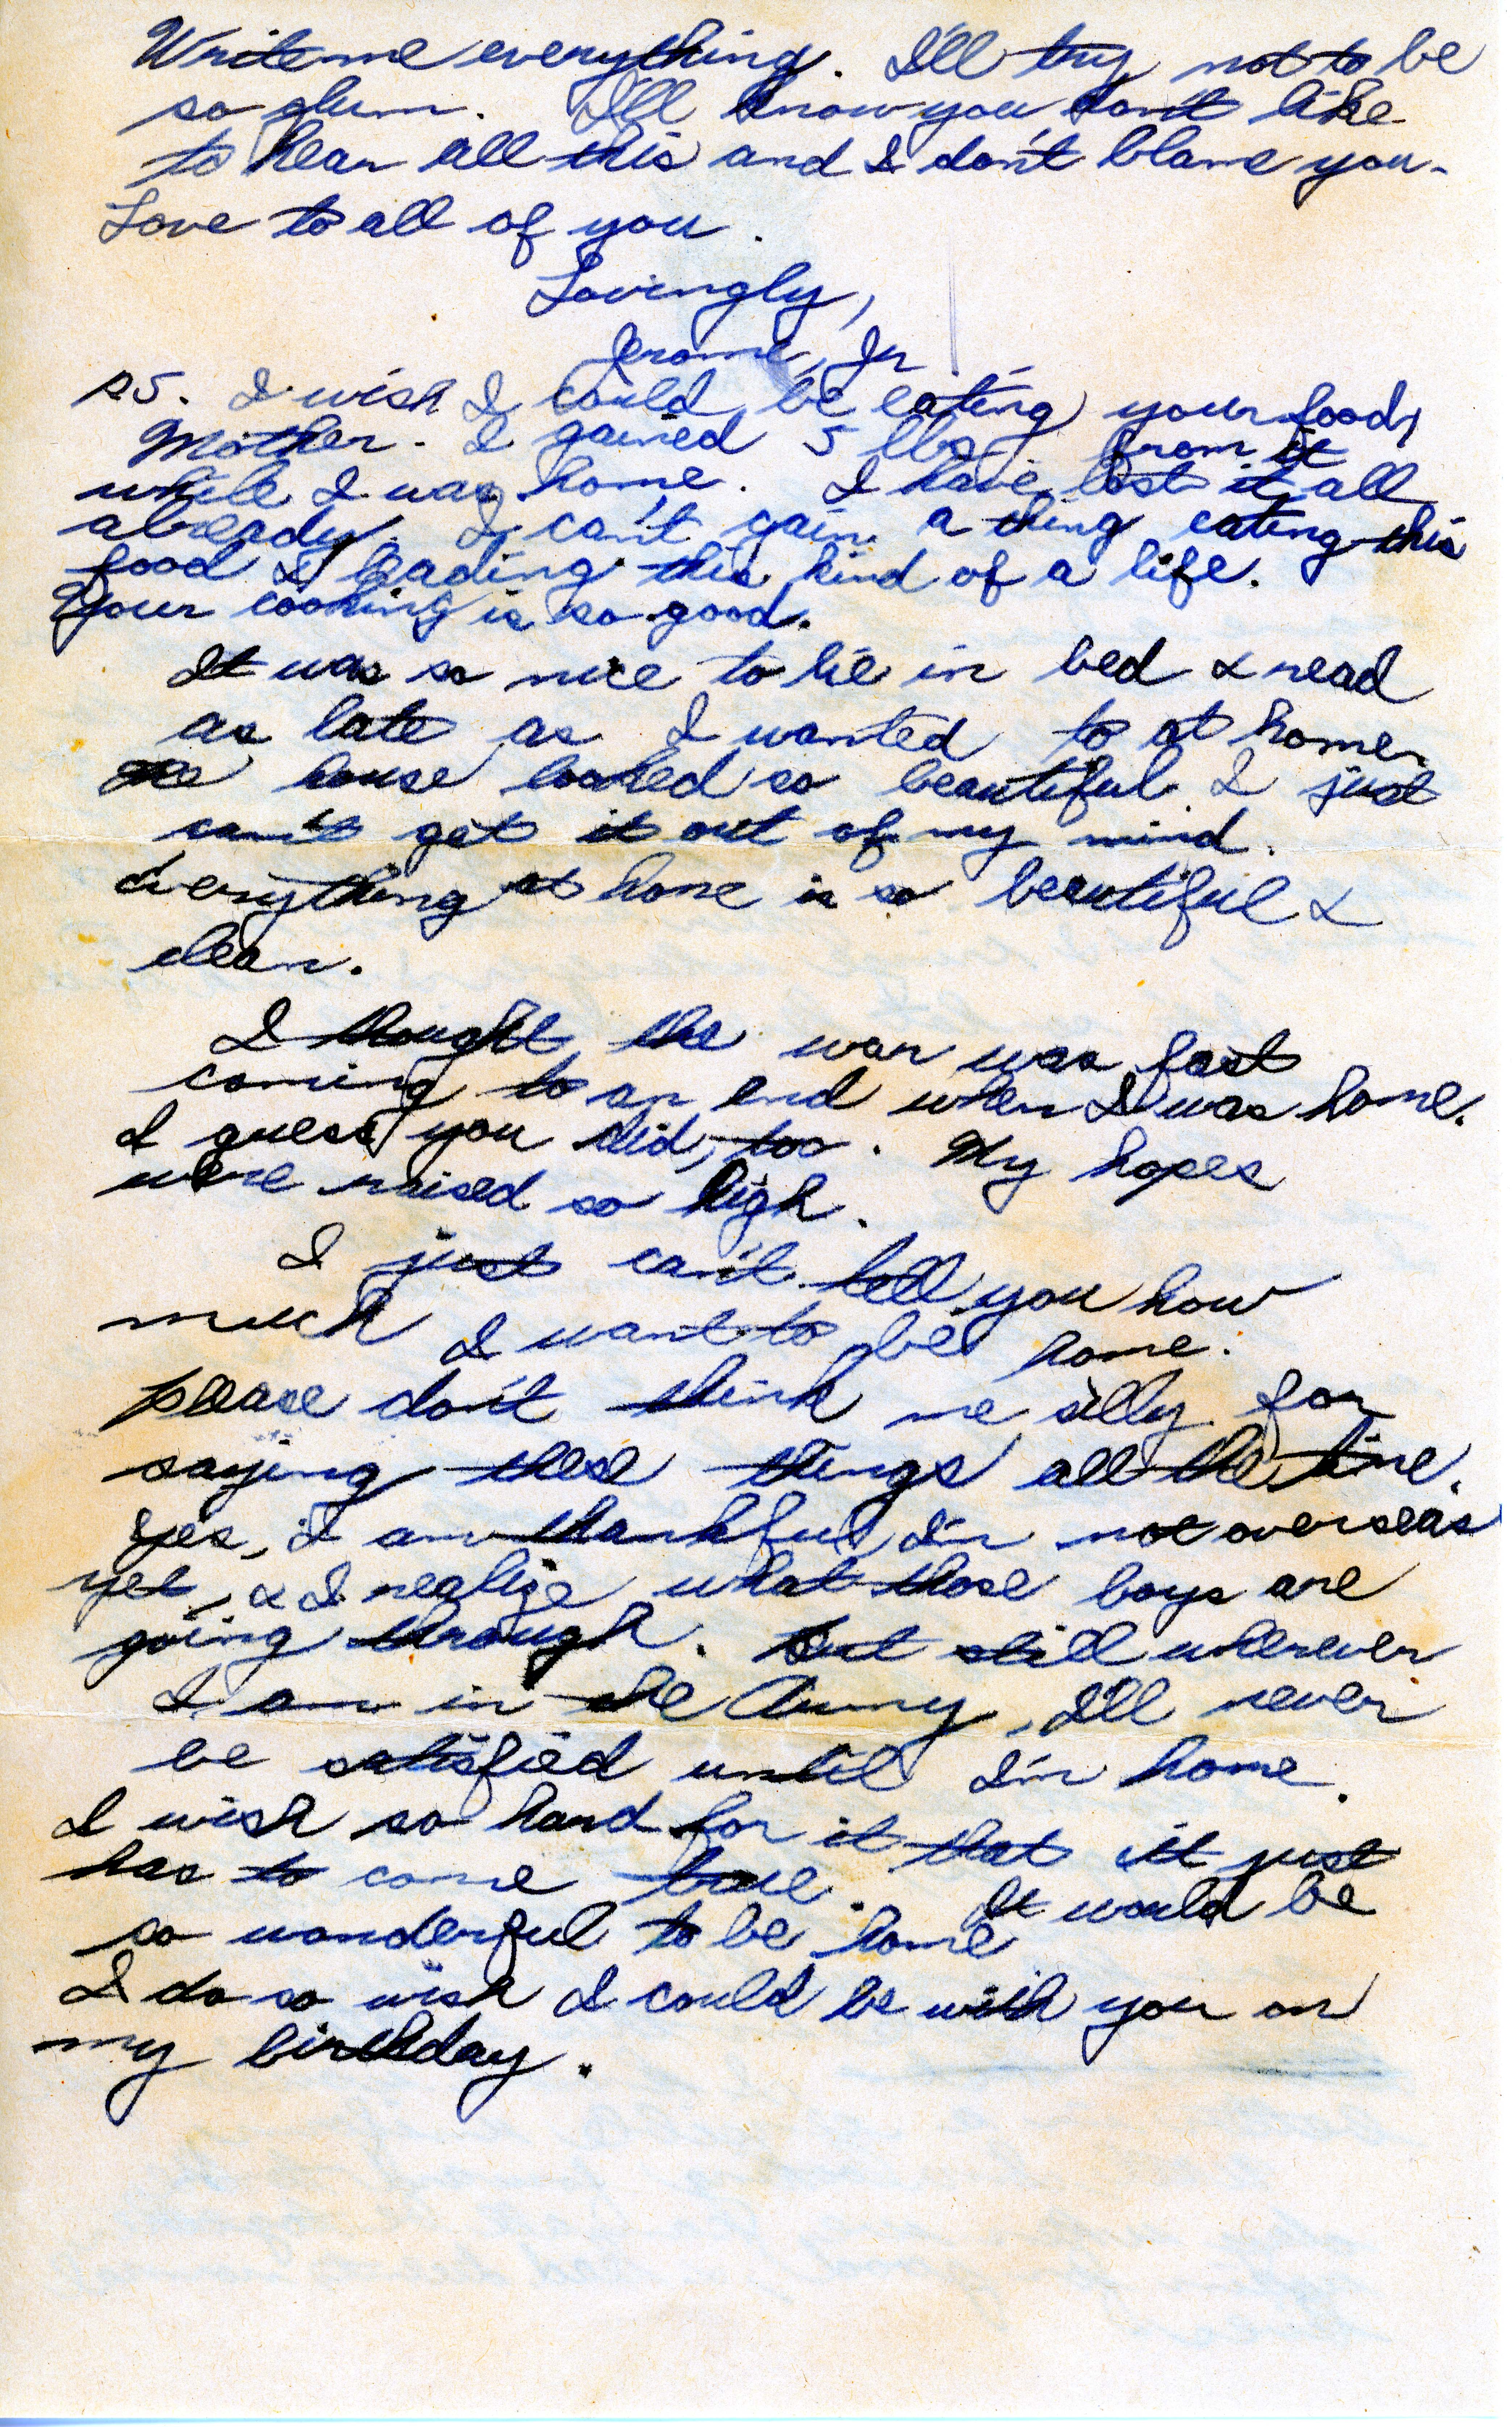 Write me everything. I'll try not to be
so glum. I'll know you don't like
to hear all this and I don't blame you.
Love to all of you.
Lovingly,
Jerome, Jr
P.S. I wish I could be eating your food,
Mother. I gained 5 lbs. from it
while I was home. I have lost it all
already. I can't gain a thing eating this
food & leading this kind of a life.
Your cooking is so good.
It was so nice to lie in bed & read
as late as I wanted to at home.
The house looked so beautiful. I just
can't get it out of my mind.
Everything at home is so beautiful &
clean.
I thought the war was fast
coming to an end when I was home.
I guess you did, too. My hopes
were raised so high.
I just can't tell you how
much I want to be home.
Please don't think me silly for
saying these things all the time.
Yes, I am thankful I'm not overseas
yet, & I realize what those boys are
going through. But still wherever
I am in the Army, I'll never
be satisfied until I'm home.
I wish so hard for it that it just
has to come true. It would be
so wonderful to be home
I do so wish I could be with you on
my birthday.